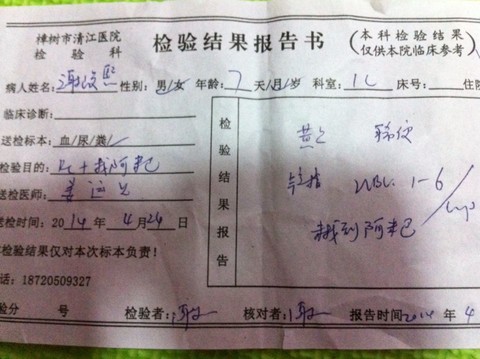 樟树市清江医院
检验科
检验结果报告书
(本科检验结果
仅供本院临床参考)
病人姓名: 性别:男/女 年龄:7天/月/岁 科室:儿 床号: 住院
临床诊断:
送检标本:血/尿/粪/
检验目的: 找阿米巴
送检医师:姜
送检时间:2014年4月24日
检验结果仅对本次标本负责!
话:18720509327
检验结果报告
黄 稀便
镜检 WBC. 1-6/HP
找到阿米巴
验分 号 检验者: 核对者: 报告时间2014年4